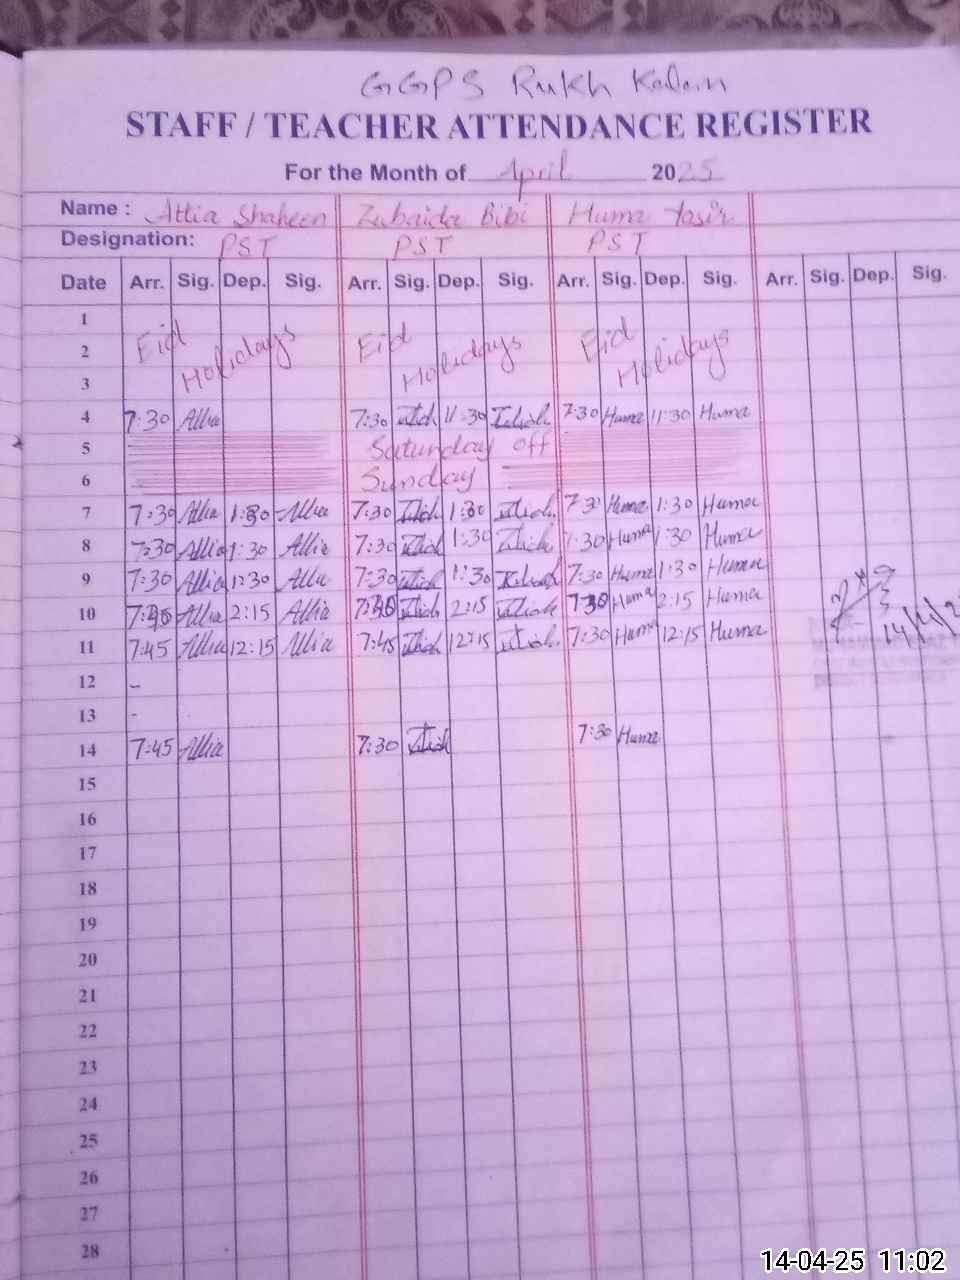 GGPS Rukh Kalan
STAFF / TEACHER ATTENDANCE REGISTER
For the Month of April 2025
Name : Attia Shaheen Zubaida Bibi Huma Yasir
Designation: PST PST PST
Date Arr. Sig. Dep. Sig. Arr. Sig. Dep. Sig. Arr. Sig. Dep. Sig. Arr. Sig. Dep. Sig.
1
2 Eid Holidays Eid Holidays Eid Holidays
3
4 7:30 Attia 7:30 11:30 7:30 Huma 11:30 Huma
5 Saturday off
6 Sunday
7 7:30 Attia 1:30 Attia 7:30 1:30 7:30 Huma 1:30 Huma
8 7:30 Attia 1:30 Attia 7:30 1:30 7:30 Huma 1:30 Huma
9 7:30 Attia 1:30 Attia 7:30 1:30 7:30 Huma 1:30 Huma
10 Attia 2:15 Attia 2:15 7:30 Huma 2:15 Huma
11 7:45 Attia 12:15 Attia 7:45 12:15 7:30 Huma 12:15 Huma
12 -
13 -
14 7:45 Attia 7:30 7:30 Huma
15
16
17
18
19
20
21
22
23
24
25
26
27
28
14-04-25 11:02